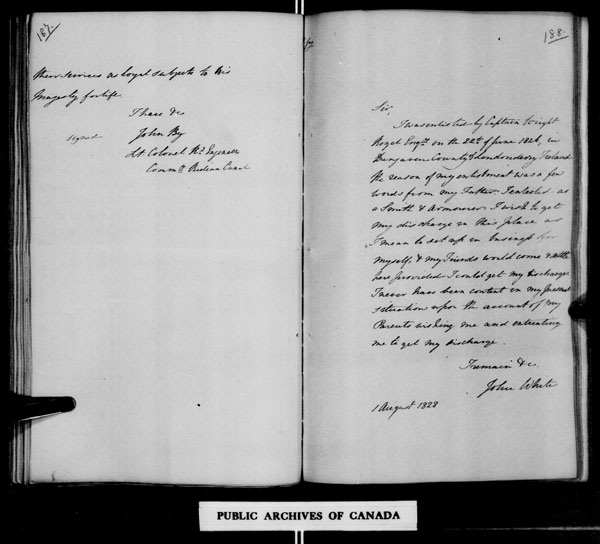 187.
their services as loyal subjects to his
Majesty for life.
I have &c
Signed John By
Lt Colonel Rl Engineers
Commg. Rideau Canal
188.
Sir,
I was enlisted by Captain Wright
Royal Engrs. on the 22nd of June 1826, in
Dungiven County of Londonderry Ireland
the reason of my enlistment was a few
words from my Father. I enlisted as
a Smith & Armourer. I wish to get
my discharge in this place as
I mean to set up in business for
myself, & my Friends would come & settle
here provided I could get my discharge
I never have been content in my present
situation upon the account of my
Parents wishing me and entreating
me to get my discharge.
I remain &c.
John White
1 August 1828
PUBLIC ARCHIVES OF CANADA